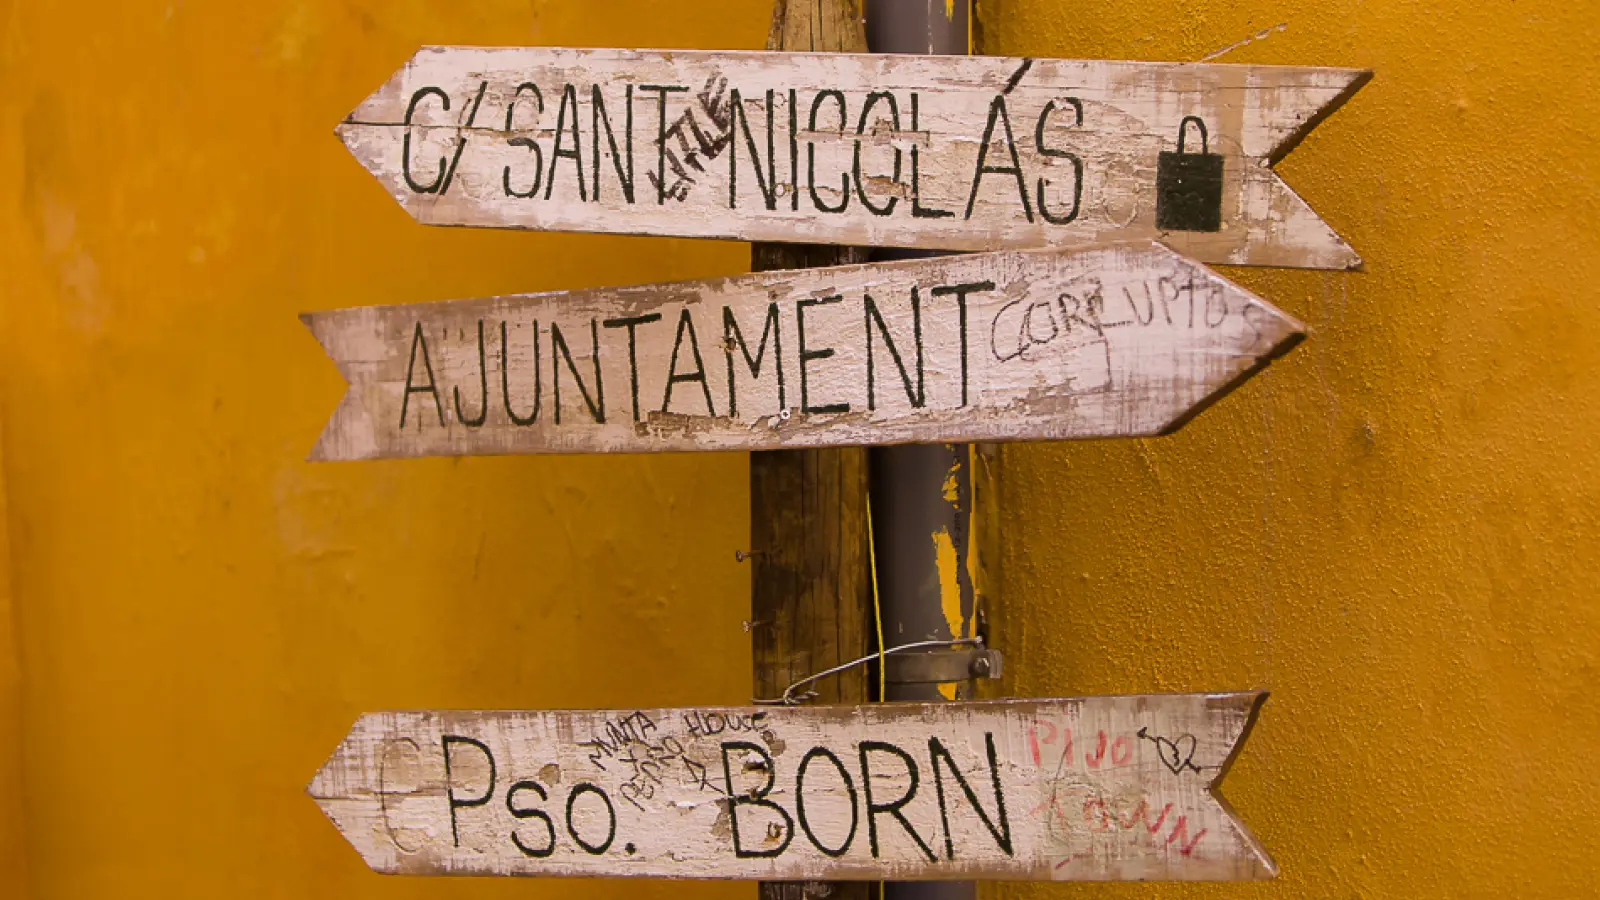 C/ SANT NICOLÁS
LITTLE
AJUNTAMENT
CORRUPTOS
Pso. BORN
HOUSE
PIJO
TOWNN